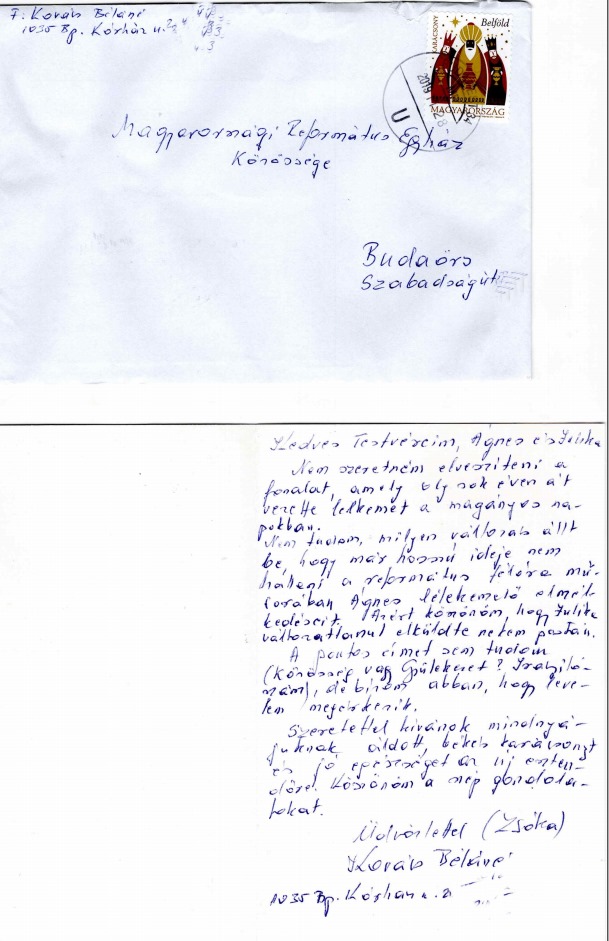 F. Kovács Béláné
1035 Bp. Kórház u.
KARÁCSONY
Belföld
MAGYARORSZÁG
2019
U
Magyarországi Református Egyház
Közössége
Budaörs
Szabadság út
Kedves Testvéreim, Ágnes és Julika
Nem szeretném elveszíteni a
fonalat, amely oly sok éven át
vezette lelkemet a magányos na-
pokban.
Nem tudom, milyen változás állt
be, hogy már hosszú ideje nem
hallani a református félóra mű-
sorában Ágnes lélekemelő elmél-
kedéseit. Azért köszönöm, hogy Julika
változatlanul elküldte nekem postán.
A pontos címet sem tudom
(Közösség vagy Gyülekezet? Irányító-
szám), de bízom abban, hogy leve-
lem megérkezik.
Szeretettel kívánok mindnyá-
juknak áldott, békés karácsonyt
és jó egészséget az új eszten-
dőre. Köszönöm a szép gondola-
tokat.
Üdvözlettel (Zsóka)
Kovács Béláné
1035 Bp. Kórház u. 2